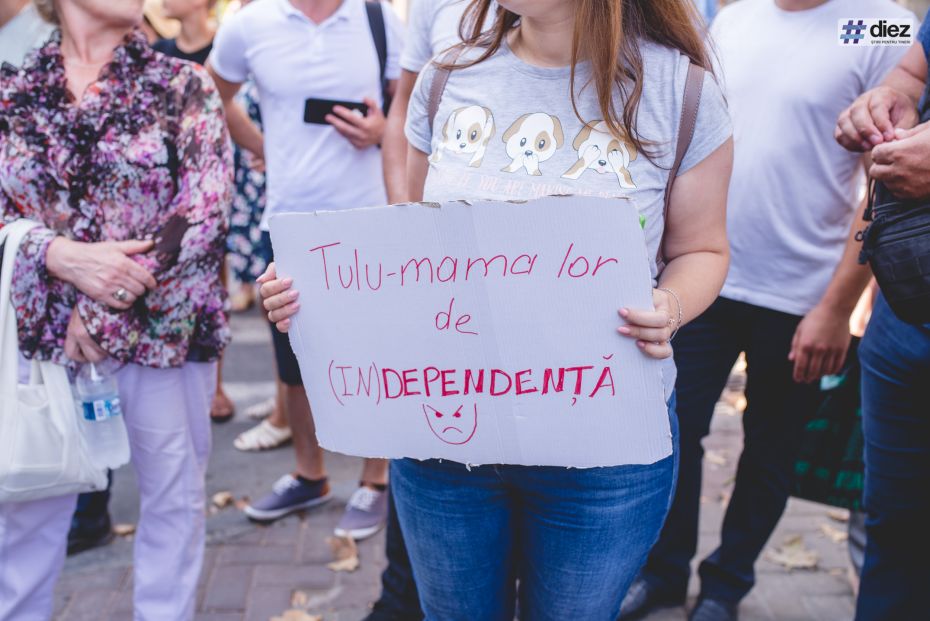 #diez
ȘTIRI PENTRU TINERI
Tulu-mama lor
de
(IN)DEPENDENȚĂ